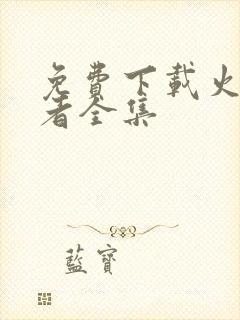 免费下載火
者全集
藍寶